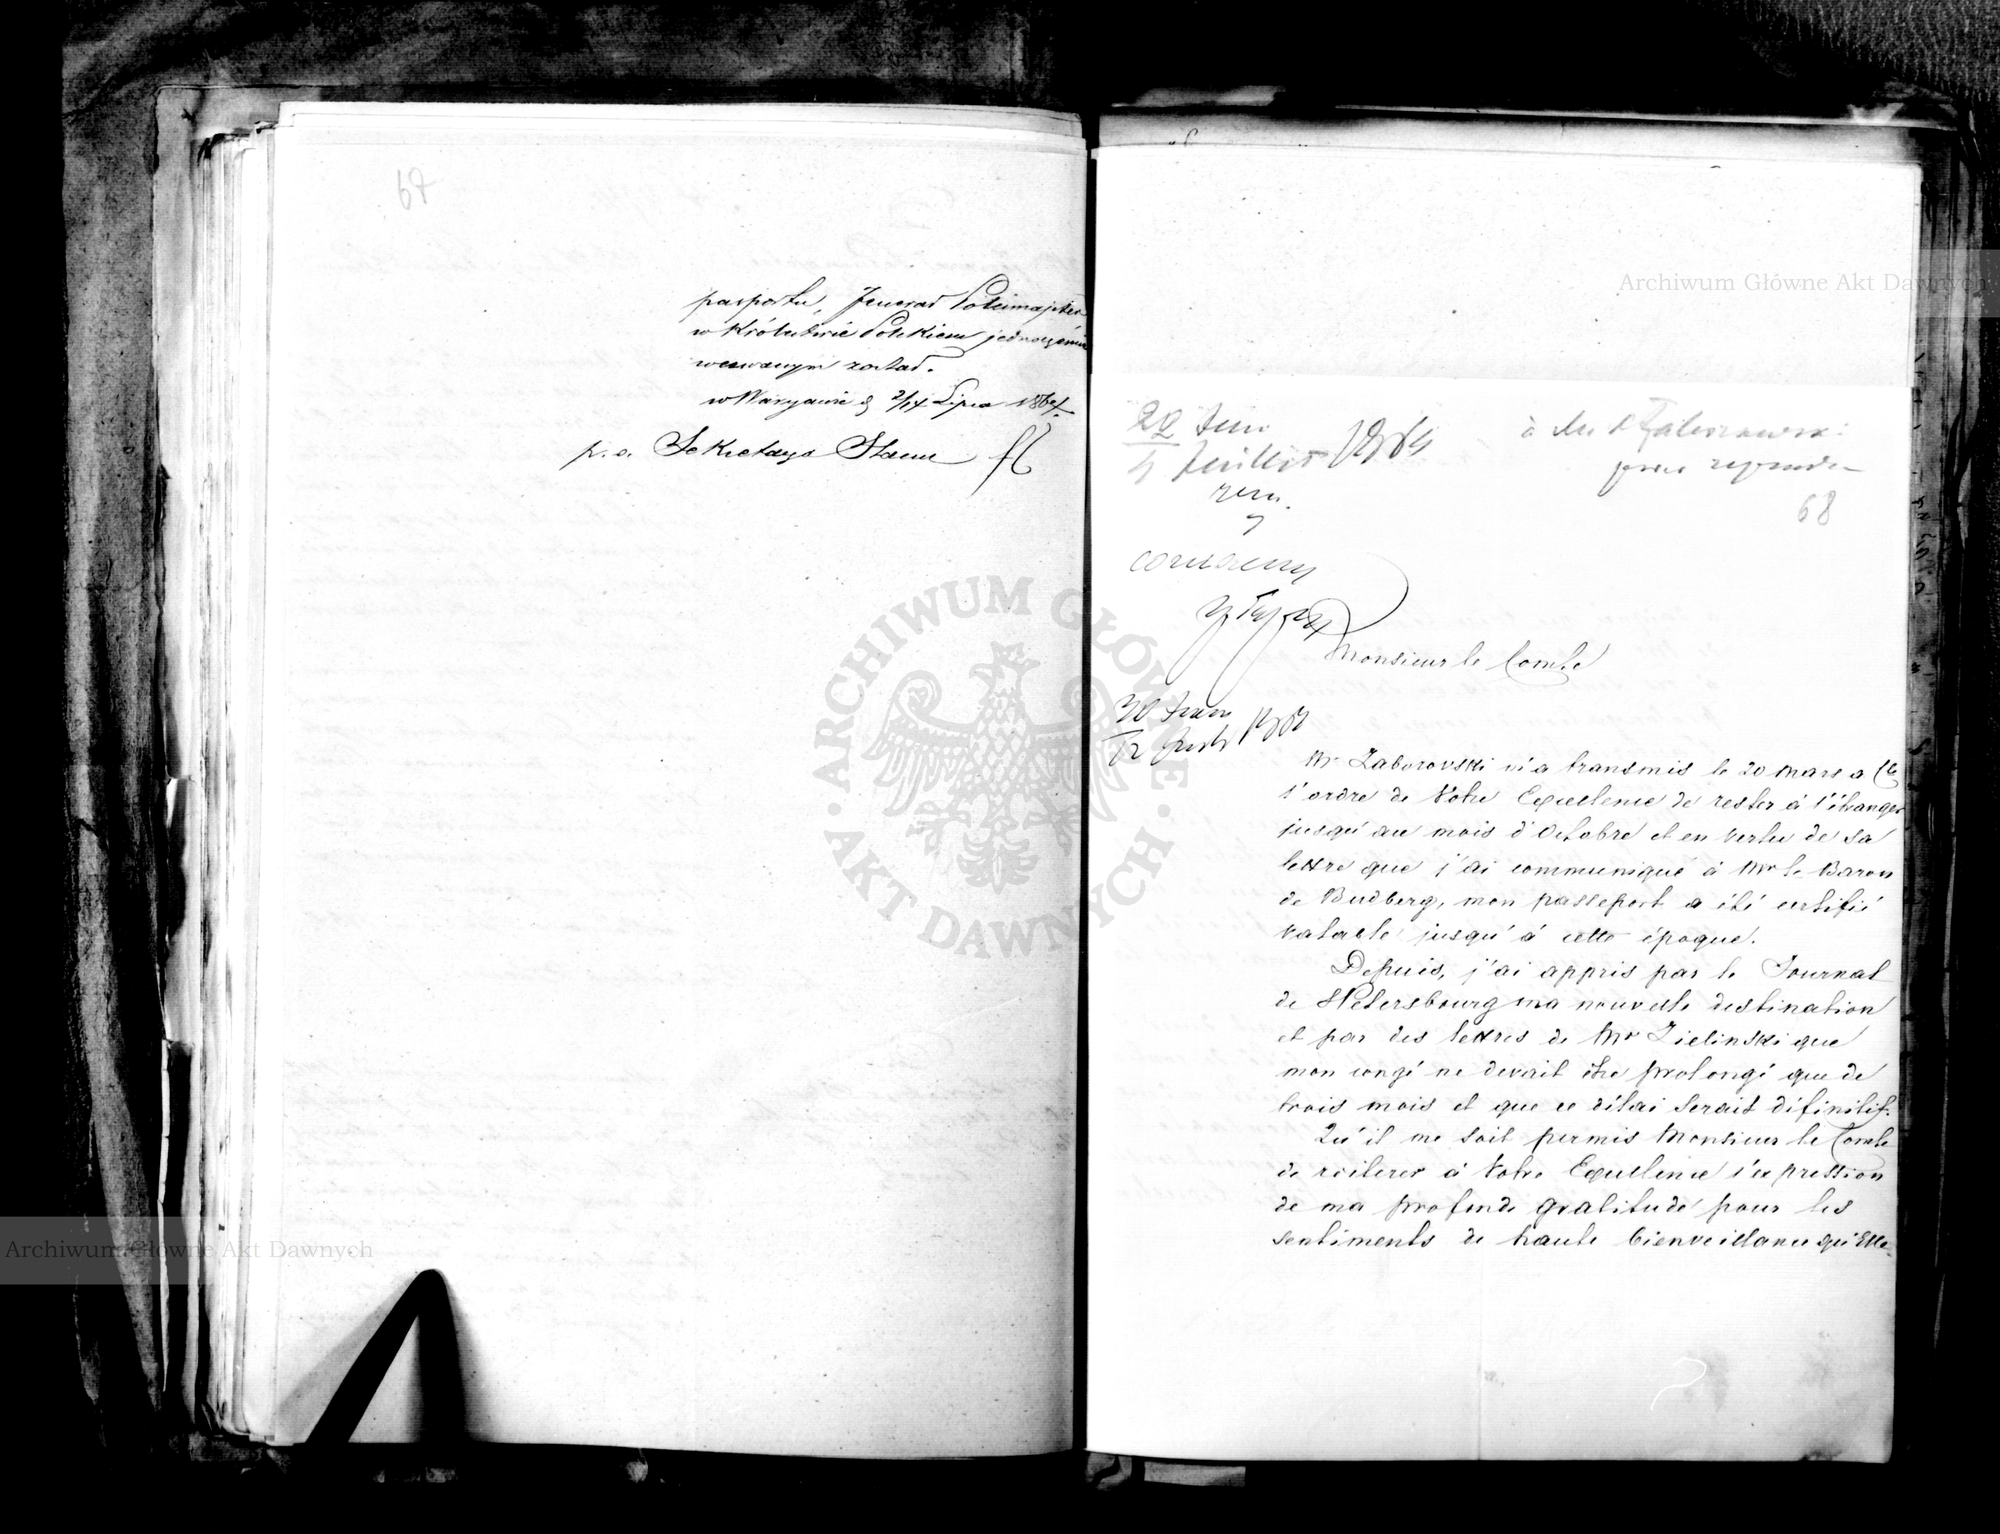 67
pasportu, Jenerał Policmajster
w Królestwie Polskiem jednocześnie
wezwanym został.
w Warszawie d. 2/14 Lipca 1864.
p. o. Sekretarz Stanu
22 Juin
4 Juillet 1864
à Mr Zaborowski
pour reponde
68
Monsieur le Comte
30 Juin
12 Juil
Mr Zaborovski m'a transmis le 20 mars a c
l'ordre de Votre Excellence de rester à l'étranger
jusqu'au mois d'Octobre et en vertu de sa
lettre que j'ai communiqué à Mr le Baron
de Budberg, mon passeport a été certifié
valable jusqu'à cette époque.
Depuis, j'ai appris par le Journal
de St Petersbourg ma nouvelle destination
et par des lettres de Mr Zielinski que
mon congé ne devait être prolongé que de
trois mois et que ce délai serait définitif.
Qu'il me soit permis Monsieur le Comte
de réiterer à Votre Excellence l'expression
de ma profonde gratitude pour les
sentiments de haute bienveillance qu'Elle
Archiwum Główne Akt Dawnych
Archiwum Główne Akt Dawnych
ARCHIWUM GŁÓWNE
AKT DAWNYCH